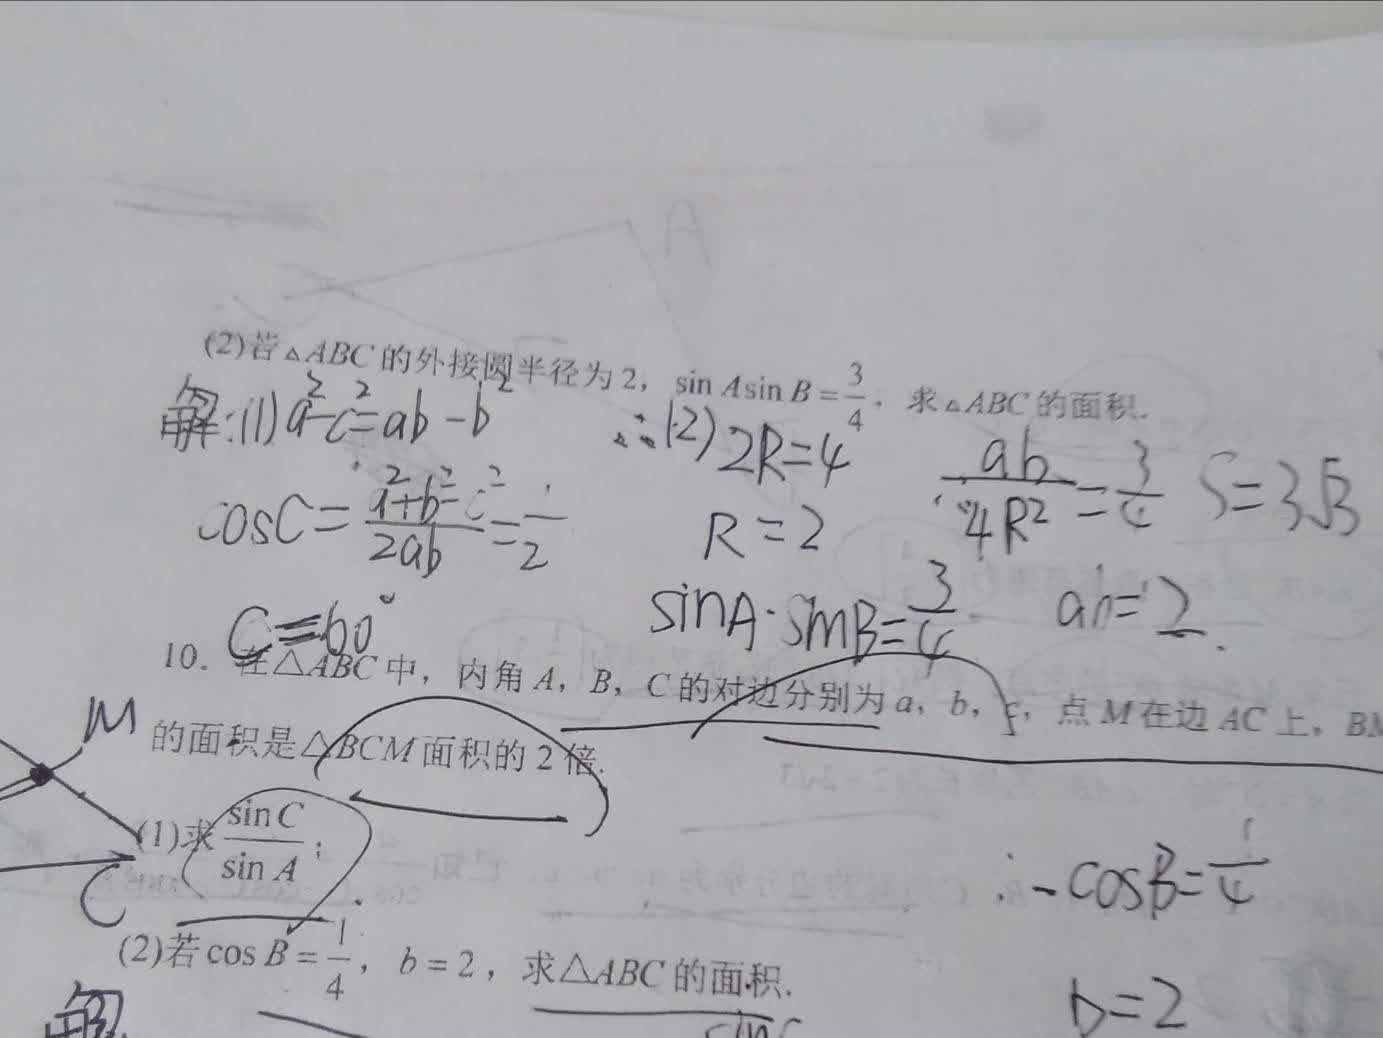 (2)若△ABC的外接圆半径为2，sin Asin B=3/4，求△ABC的面积.
解:(1) a²-c²=ab-b²
cosC=(a²+b²-c²)/2ab=1/2
C=60°
∴(2) 2R=4
R=2
sinA·sinB=3/4
ab/4R²=3/4
ab=2
S=3√3
10. 在△ABC中，内角A，B，C的对边分别为a，b，c，点M在边AC上，BM
的面积是△BCM面积的2倍.
M
C
(1)求sin C/sin A；
(2)若cos B=1/4，b=2，求△ABC的面积.
∴-cosB=1/4
b=2
解
sinC